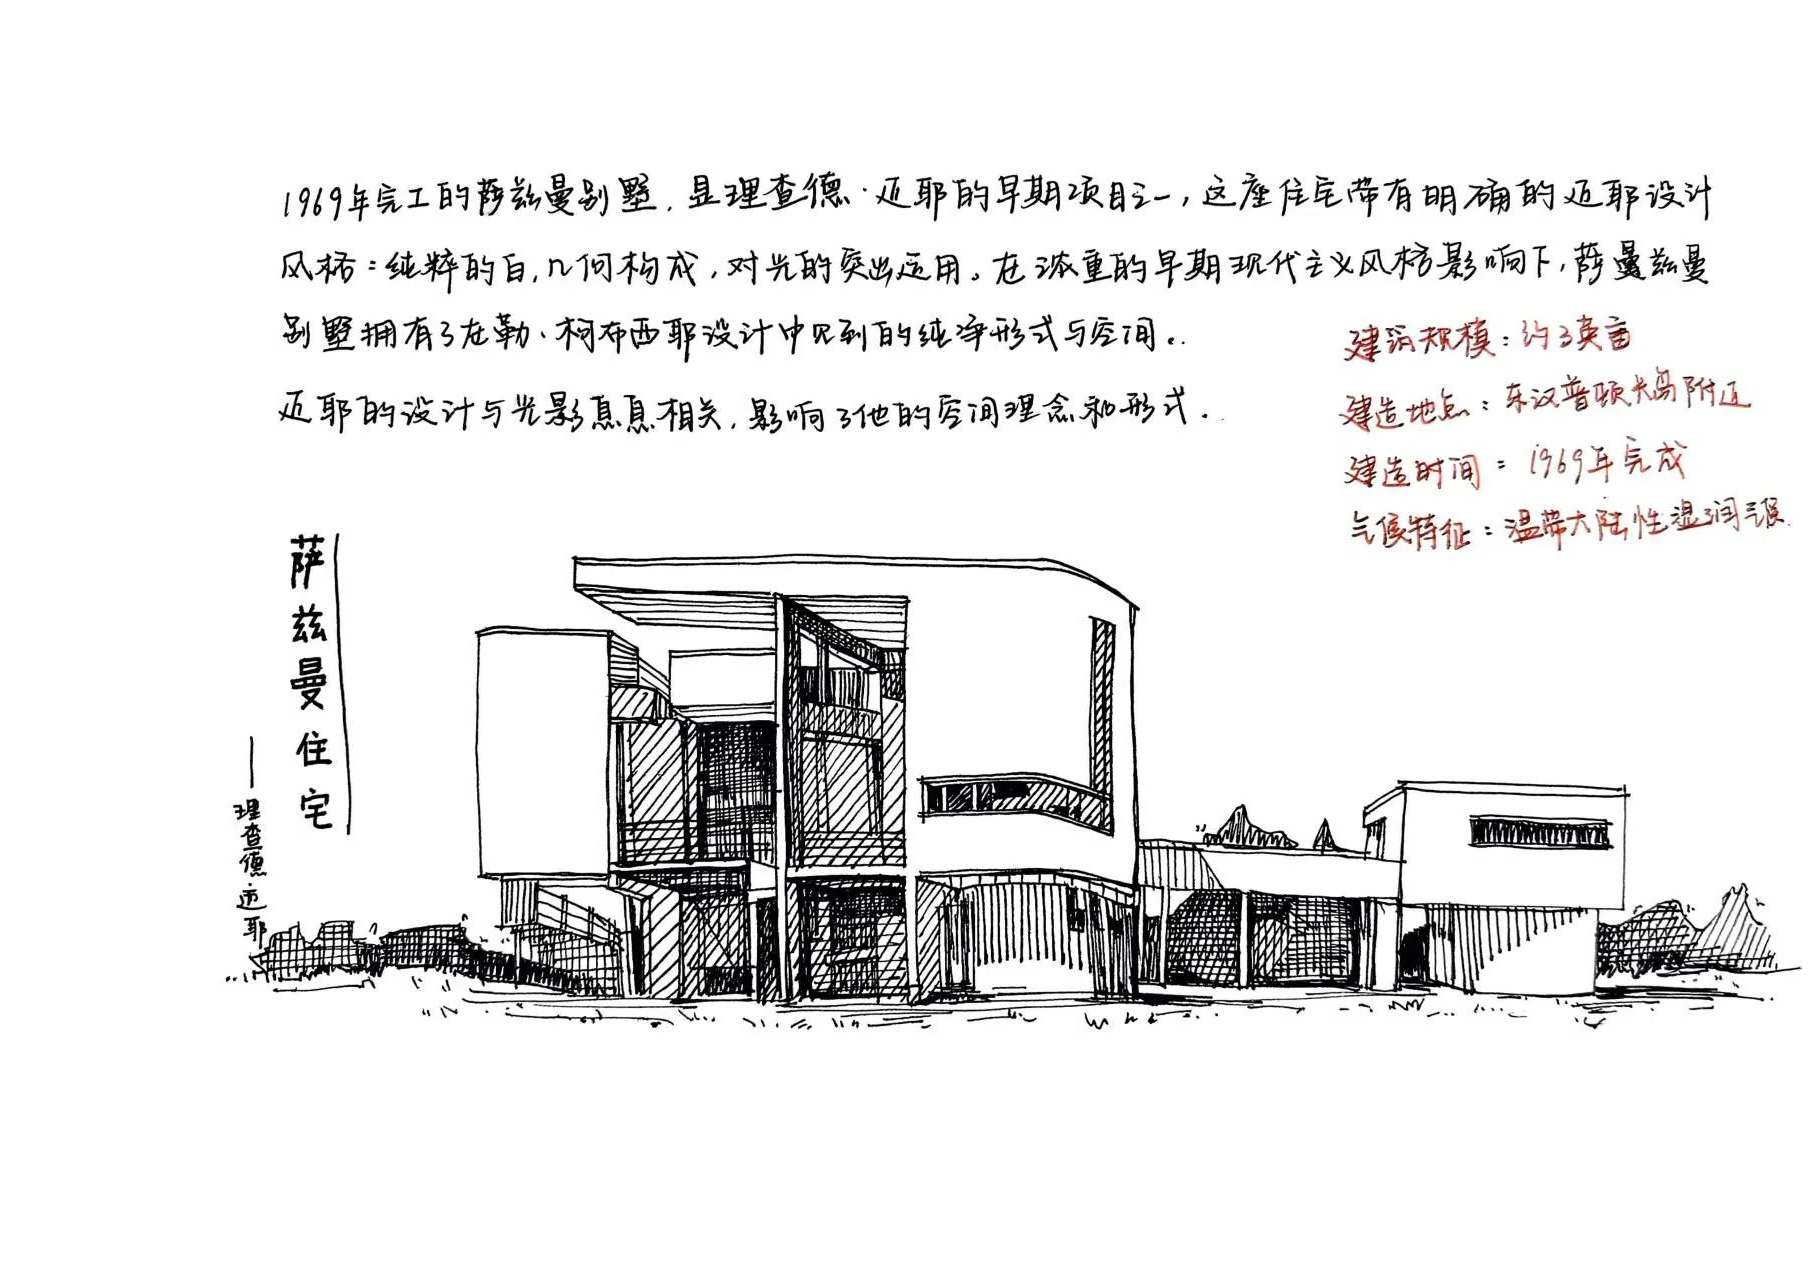 1969年完工的萨兹曼别墅,是理查德·迈耶的早期项目之一,这座住宅带有明确的迈耶设计
风格:纯粹的白,几何构成,对光的突出运用。在浓重的早期现代主义风格影响下,萨曼兹曼
别墅拥有了在勒·柯布西耶设计中见到的纯净形式与空间。
迈耶的设计与光影息息相关,影响了他的空间理念和形式。
建筑规模:约3英亩
建造地点:东汉普顿长岛附近
建造时间:1969年完成
气候特征:温带大陆性湿润气候
萨兹曼住宅
——理查德迈耶